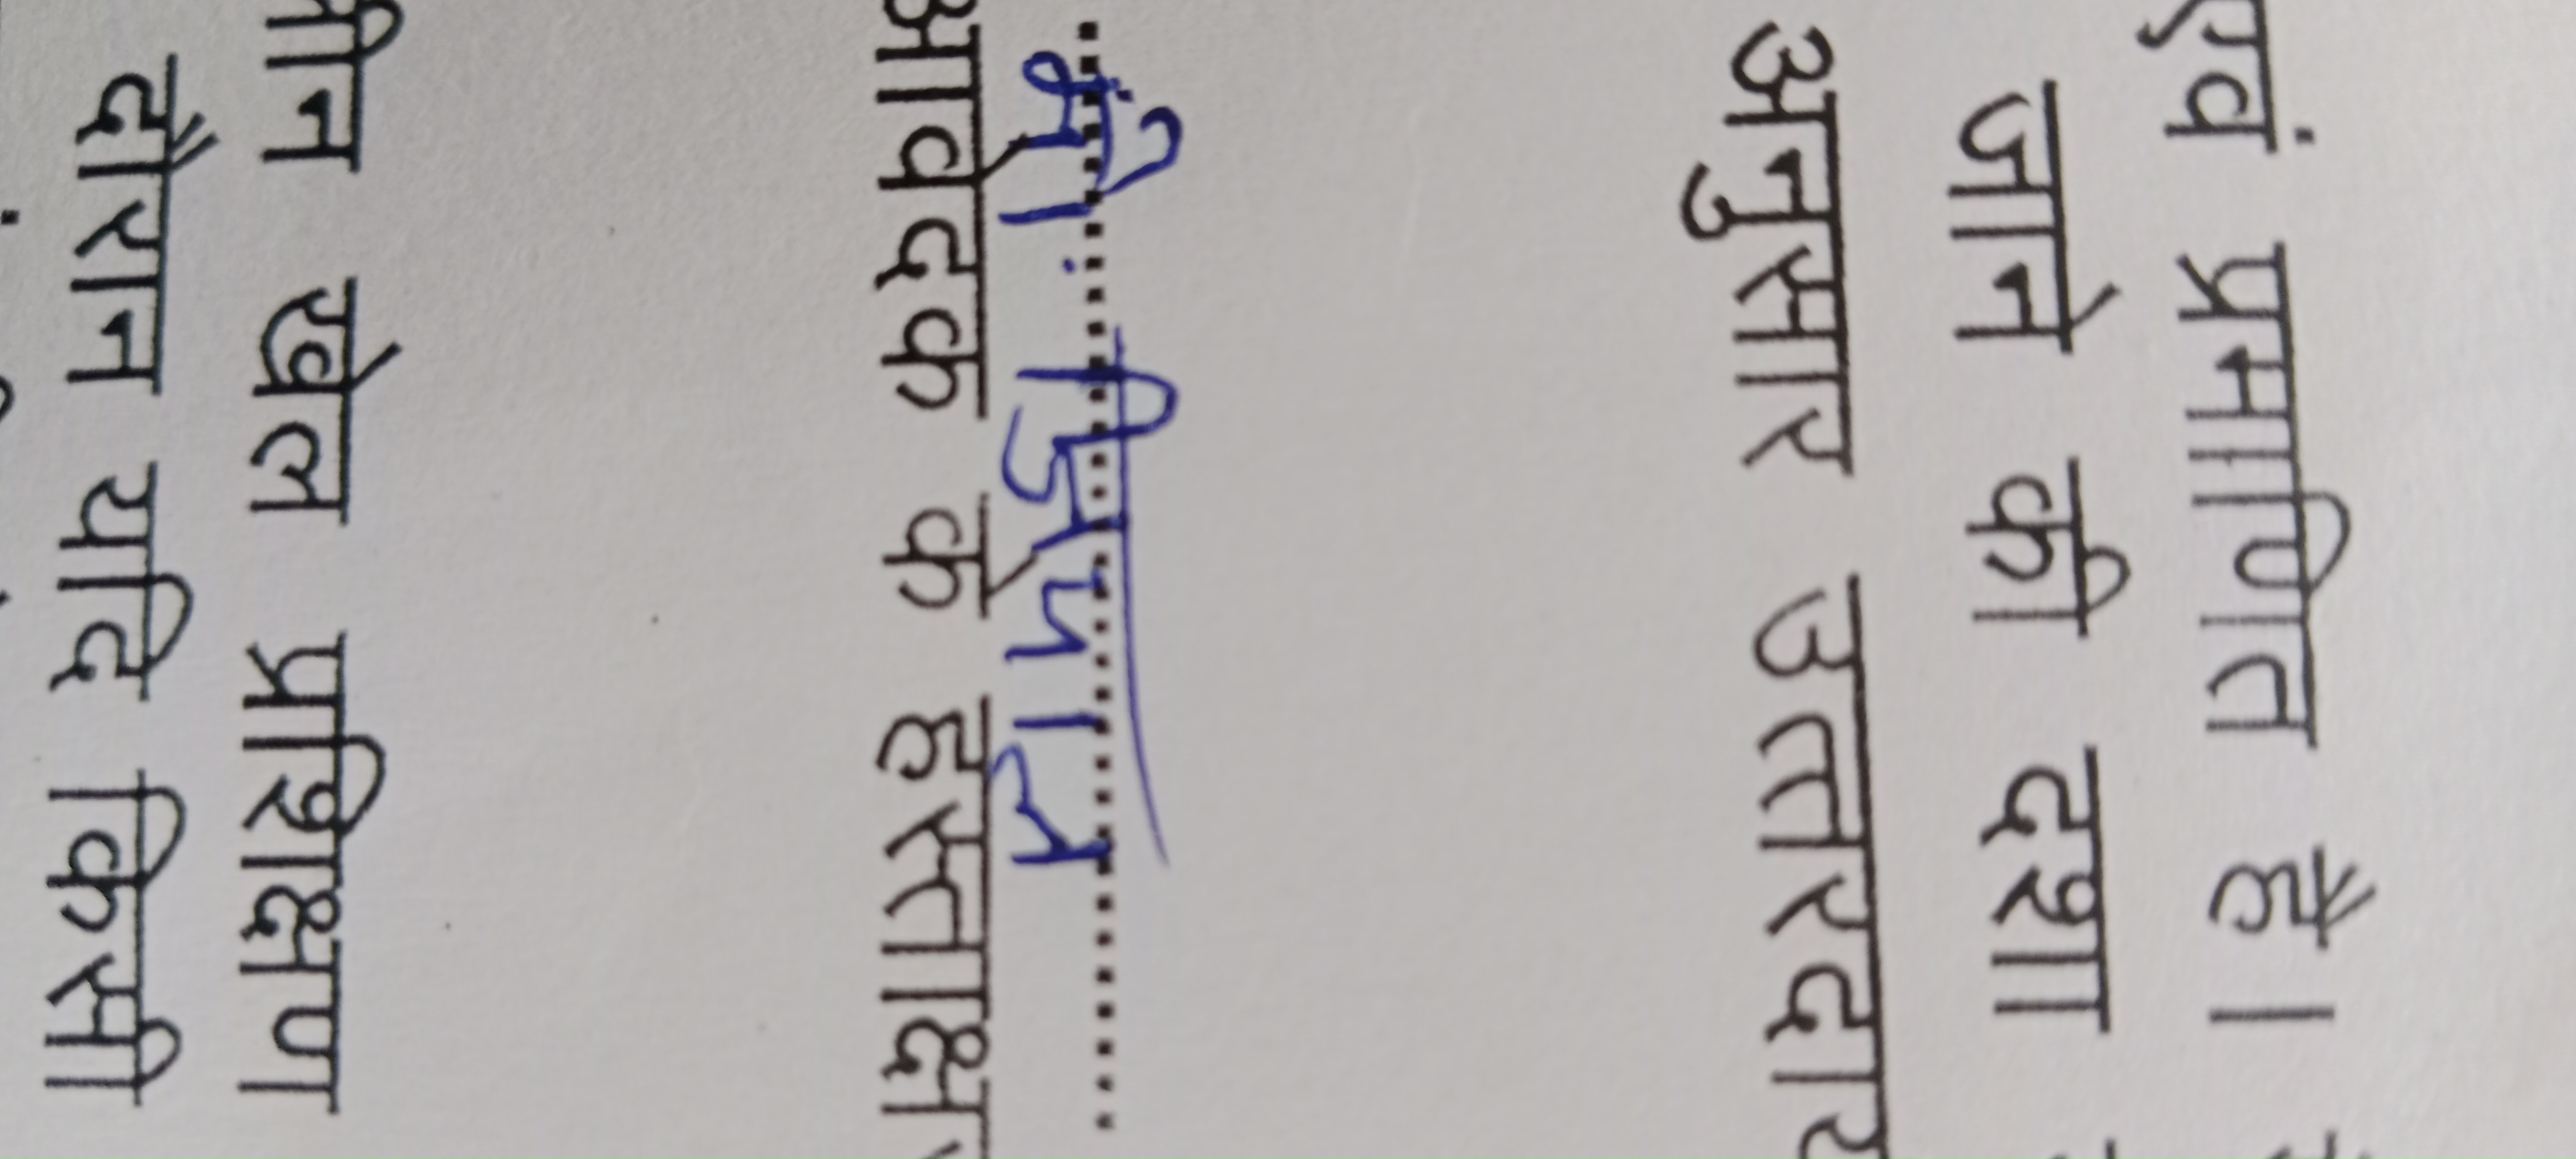 एवं प्रमाणित है।
जाने की दशा
अनुसार उत्तरदाय
आवेदक के हस्ताक्ष
खेल प्रशिक्षण
दौरान यदि किसी